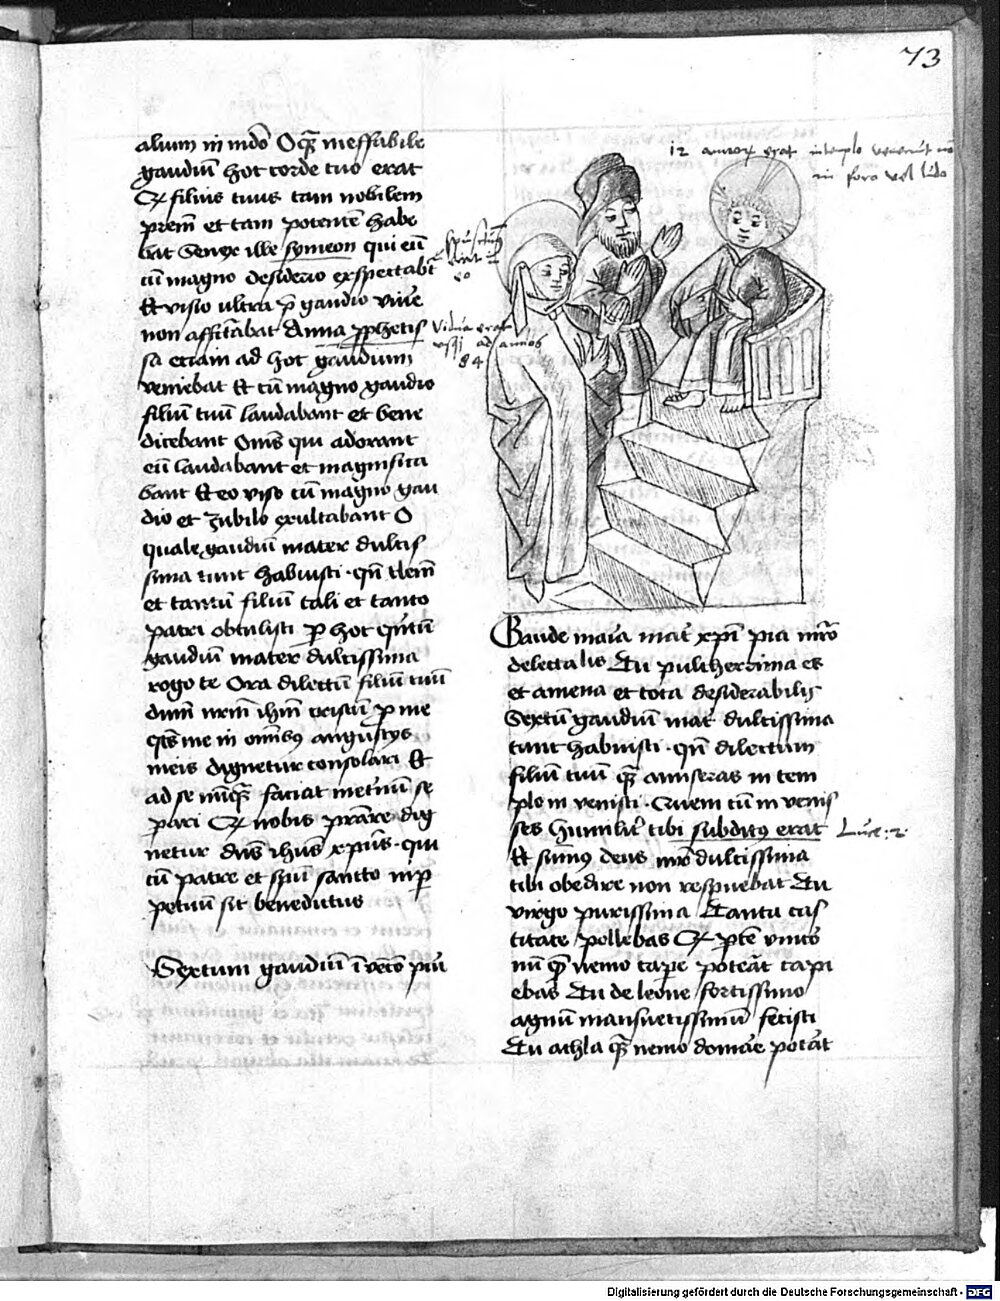 73
alium in mdo O qͣ ineffabile
gaudiū hoc corde tuo erat
Qꝛ filius tuus tam nobilem
prem̄ et tam potentē habe
bat Senex ille symeon qui eū
cū magno desiderio exspectabat
Et visio ultra p̄ gaudio viue̅
non affectabat Anna ꝓphetis
sa etiam ad hoc gaudium
veniebat Et cū magno gaudio
filiū tuū laudabant et bene
dicebant Om̄s qui adorant
eū laudabant et magnifica
bant Et eo viso cū magno gau
dio et Jubilo exultabant O
quale gaudiū mater dulcis
sima tunc habuisti · qn̄ tlem̄
et tantū filiū tali et tanto
patri obtulisti ꝑ hoc qͥntū
gaudiū mater dulcissima
rogo te Ora dilectū filiū tuū
dum̄ nr̄m ihm̄ cristū ꝓ me
qts̄ me in om̄ibꝰ angustijs
meis dignetur consolari Et
ad se nūqͣ faciat metuū se
pari Qꝛ nobis prare dig
netur dn̄s ihus xp̄us · qui
cū patre et spū sancto inꝑ
petuū sit benedictus
Sextum gaudiū
12 annoꝝ erat in templo
in foro vel ludo
Vidua erat
vsqꝫ ad annos
84
Gaude maria mat̄ xp̄i pia
delectalis Tu pulcherrima es
et amena et tota desiderabilis
Sextū gaudiū mat̄ dulcissima
tunc habuisti · qn̄ dilectum
filiū tuū quē amiseras in tem
plo in venisti · Quem cū in venis
ses humilit̄ tibi subditꝰ erat Luce: 2
Et sūmꝰ deus dulcissima
tibi obedire non respuebat Tu
virgo purissima Tanta cas
titate pollebas Qꝛ
nū qͤ nemo cape poterat capi
ebas Tu de leone fortissimo
agnū mansuetissimū fecisti
Tu nemo domare poterat
Digitalisierung gefördert durch die Deutsche Forschungsgemeinschaft - DFG